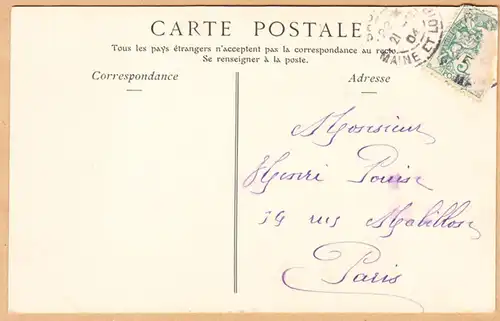 CARTE POSTALE
Tous les pays étrangers n'acceptent pas la correspondance au recto.
Se renseigner à la poste.
Correspondance
Adresse
21
04
MAINE ET LOIRE
5
Monsieur
Henri
rue Mabillon
Paris